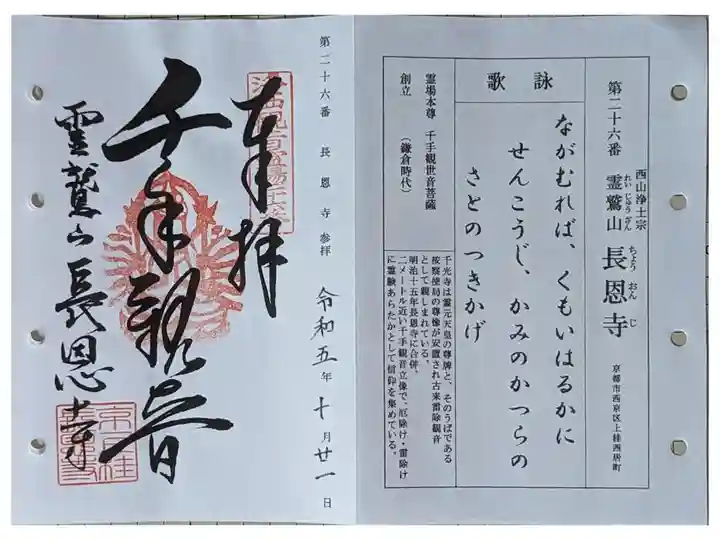 第二十六番
西山浄土宗
霊鷲山 長恩寺
れいじゅうざん ちょうおんじ
京都市西京区上桂西居町
詠歌
ながむれば、くもいはるかに
せんこうじ、かみのかつらの
さとのつきかげ
霊場本尊 千手観世音菩薩
創立 (鎌倉時代)
千光寺は霊元天皇の尊牌と、そのうばである
按察使局の尊像が安置され古来雷除観音
として親しまれている。
明治十五年長恩寺に合併。
二メートル近い千手観音立像で、厄除け・雷除け
に霊験あらたかとして信仰を集めている。
第二十六番 長恩寺参拝
奉拝
千手観音
霊鷲山長恩寺
令和五年十月廿一日